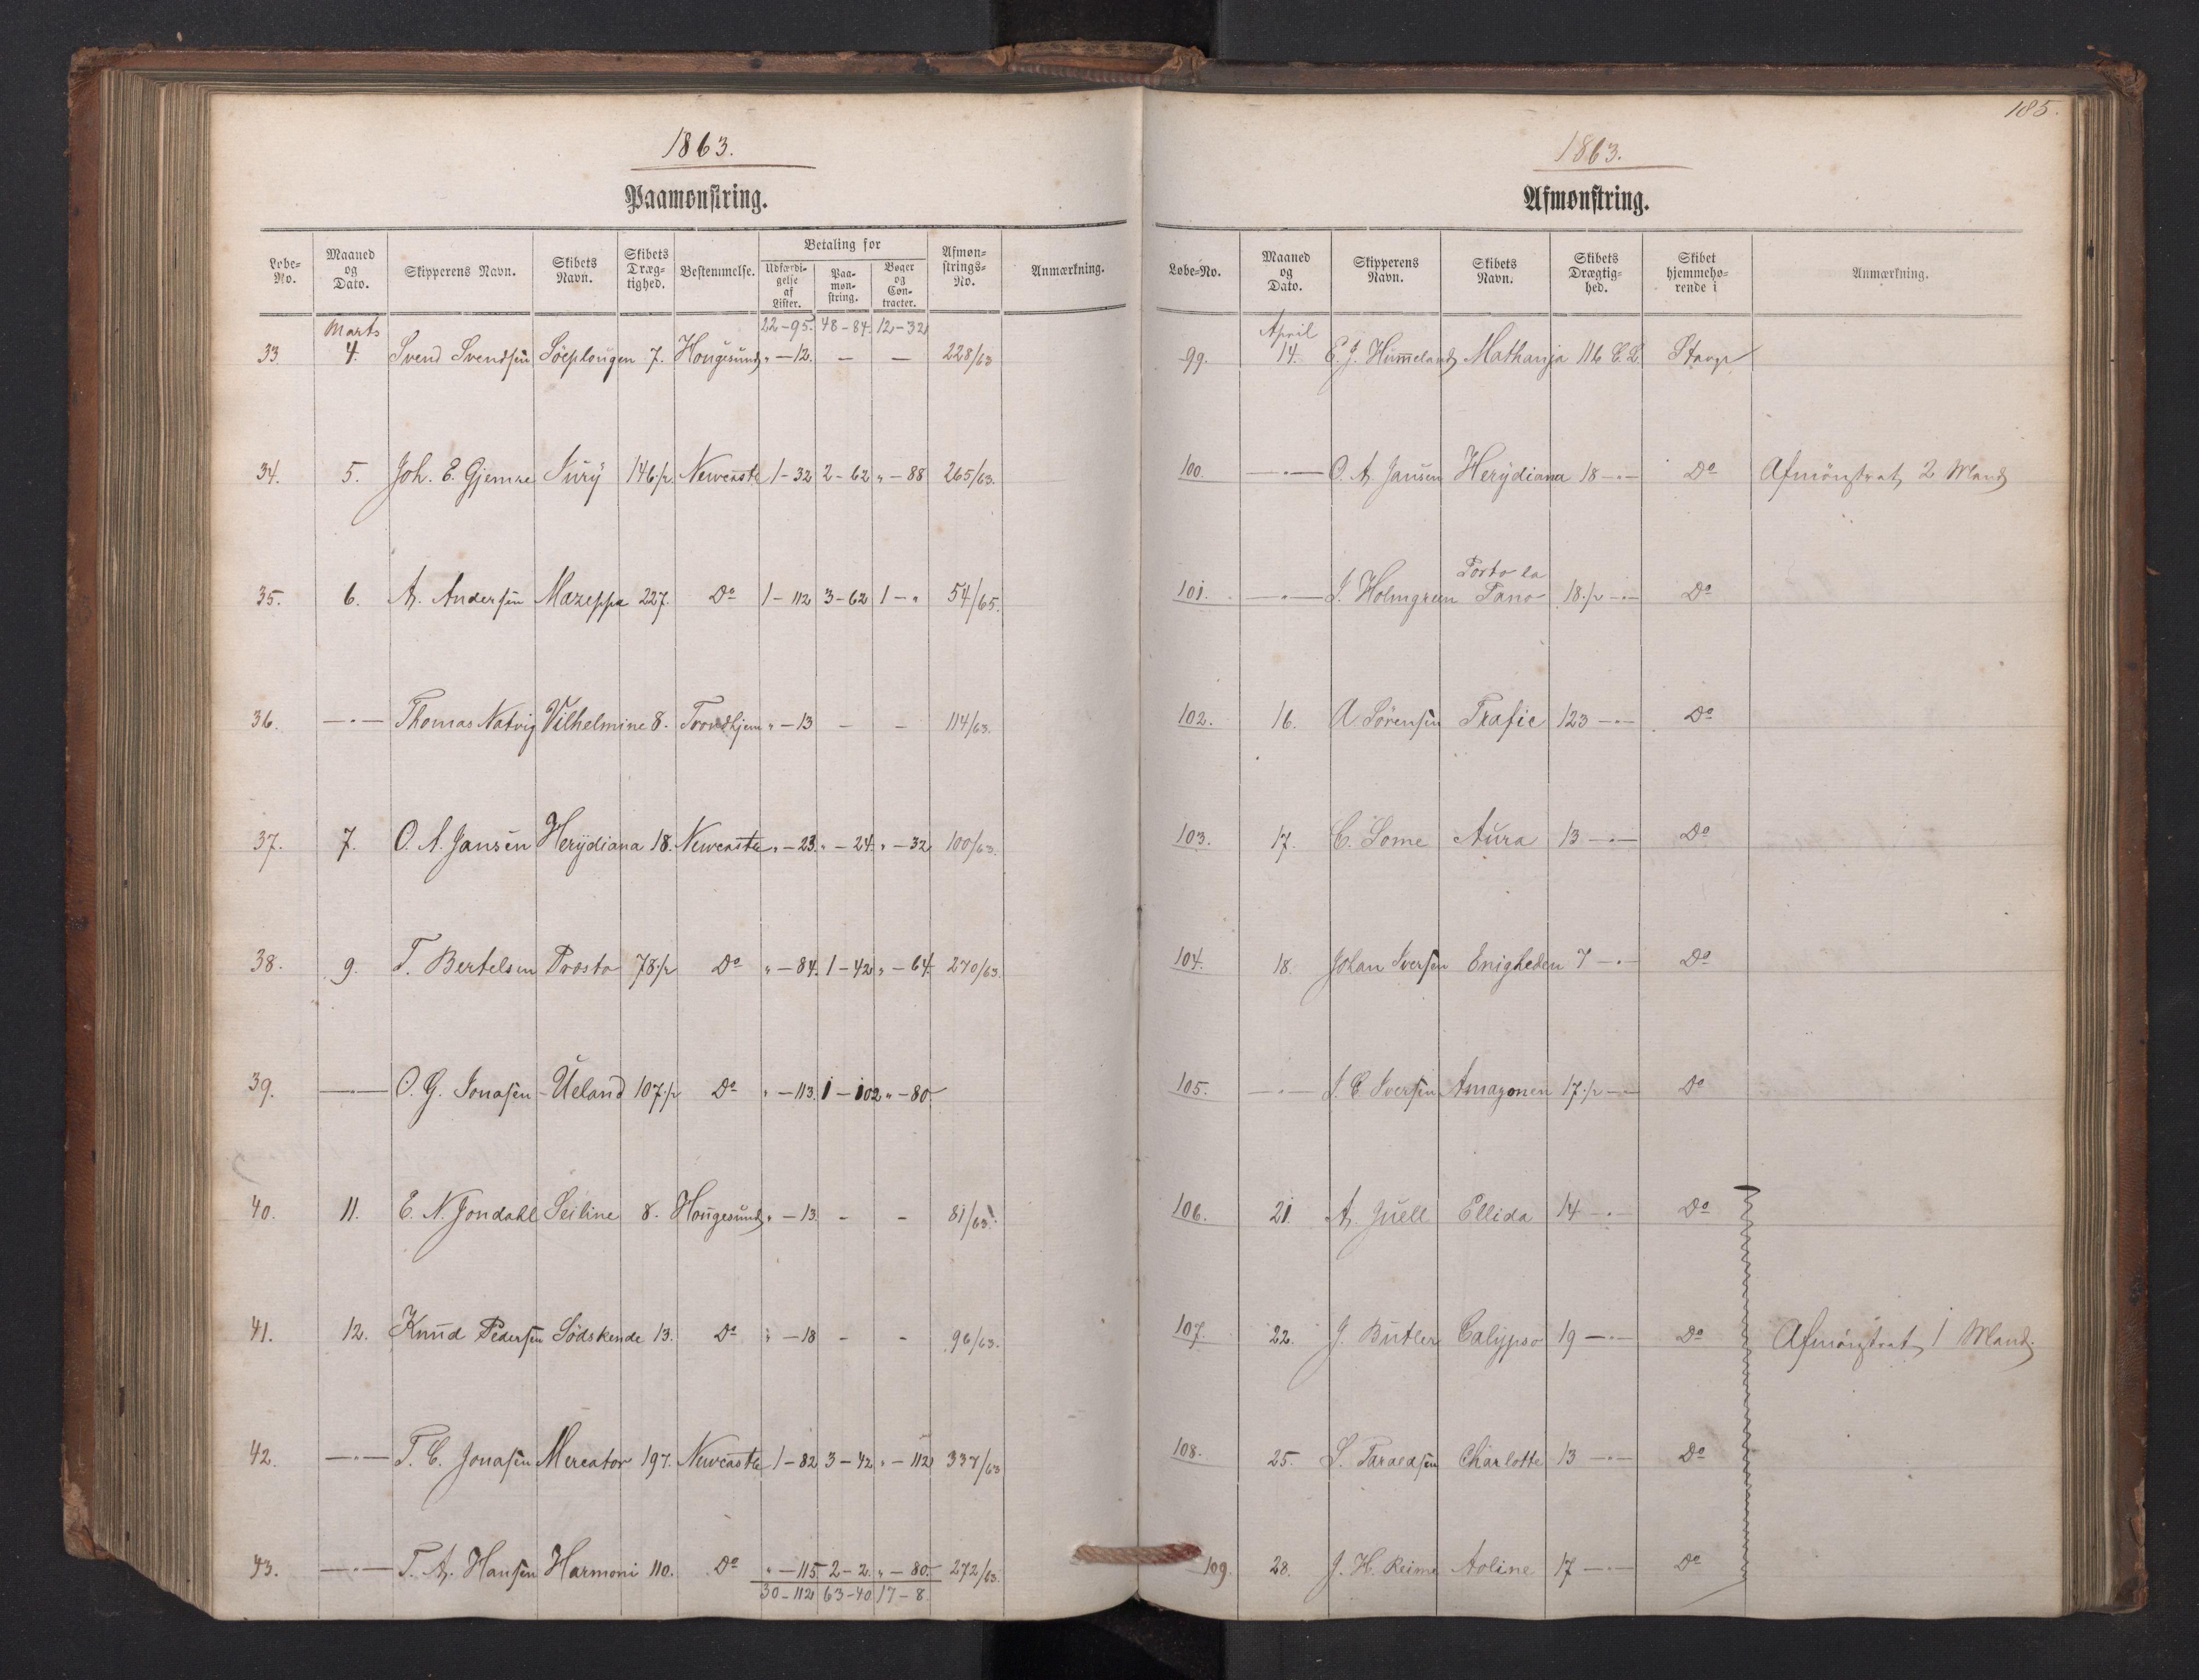 1863.
Paamønstring.
Løbe-No. Maaned og Dato. Skipperens Navn. Skibets Navn. Skibets Drægtighed. Bestemmelse. Betaling for Udfærdigelse af Lister. Paamønstring. Bøger og Contracter. Afmønstrings-No. Anmærkning.
Marts 22-95. 48-84. 12-32
33. 4. Svend Svendsen Søeplougen 7. Hougesund " - 12. - - 228/63
34. 5. Joh. E. Gjemre Jury 146½ Newcastle 1-32 2-62 " - 88 265/63.
35. 6. A. Andersen Mazeppa 227. Do 1-112 3-62 1 - " 54/65.
36. -"- Thomas Natvig Vilhelmine 8. Trondhjem " - 13 - - 114/63.
37. 7. O. A. Jansen Herydiana 18. Newcastle " - 23. " - 24. " - 32 100/63.
38. 9. T. Bertelsen Presto 78½ Do " - 84. 1-42 " - 64. 270/63.
39. -"- O. G. Jonasen Ueland 107½ Do " - 113. 1-102 " - 80.
40. 11. E. N. Jondahl Seiline 8. Hougesund " - 13. - - 81/63.
41. 12. Knud Pedersen Södskende 13. Do " - 18 - - 96/63.
42. -"- T. C. Jonasen Mercator 197. Newcastle 1-82 3-42 " - 112 337/63
43. -"- T. A. Hansen Harmoni 110. Do " - 115 2-2. " - 80. 272/63.
30-112 63-40 17-8.
185.
1863.
Afmønstring.
Løbe-No. Maaned og Dato. Skipperens Navn. Skibets Navn. Skibets Drægtighed. Skibet hjemmehørende i Anmærkning.
April
99. 14. E. J. Hummeland Mathanja 116 C. L. Stavgr
100. -"- O. A. Jansen Herydiana 18 -"- Do Afmönstret 2 Mand
101. -"- J. Holmgreen Porto la Pano 18½ -"- Do
102. 16. A. Sörensen Trafic 123 -"- Do
103. 17. C. Some Aura 13 -"- Do
104. 18. Johan Iversen Enigheden 7 -"- Do
105. -"- J. C. Iversen Amazonen 17½ -"- Do
106. 21. A. Juell Ellida 14 -"- Do
107. 22. J. Butler Calypso 19 -"- Do Afmönstret 1 Mand.
108. 25. S. Taraldsen Charlotte 13 -"- Do
109. 28. J. H. Reime Aoline 17 -"- Do